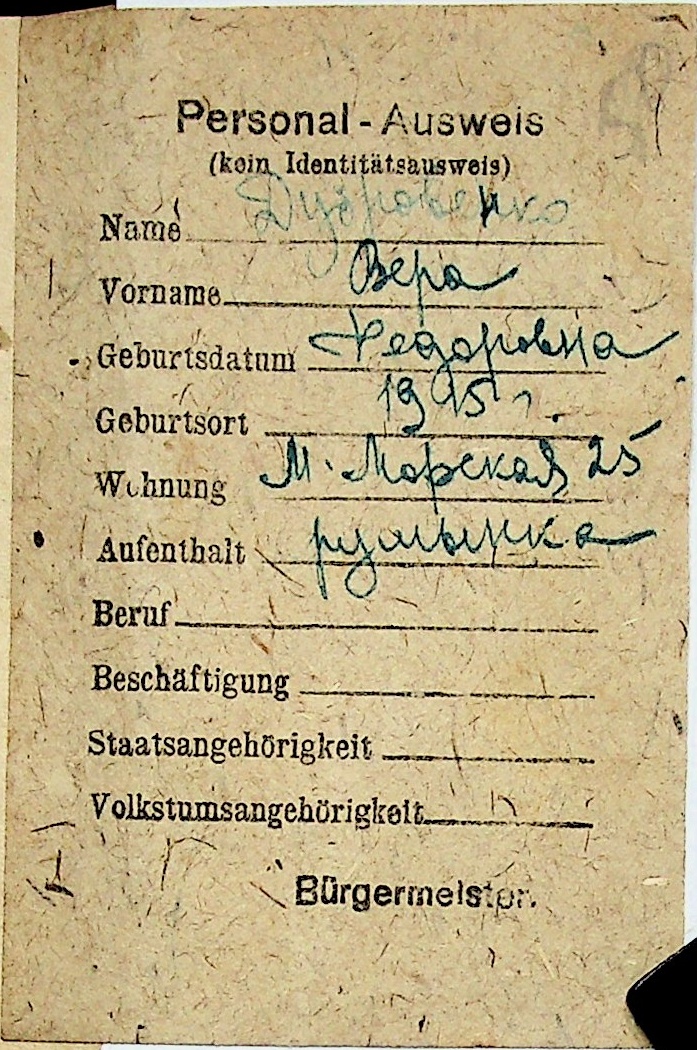 Personal - Ausweis
(kein Identitätsausweis)
Name Дубровенко
Vorname Вера
Geburtsdatum Федоровна
Geburtsort 1915 г.
Wohnung М. Морская 25
Aufenthalt румынка
Beruf
Beschäftigung
Staatsangehörigkeit
Volkstumsangehörigkeit
Bürgermeister.